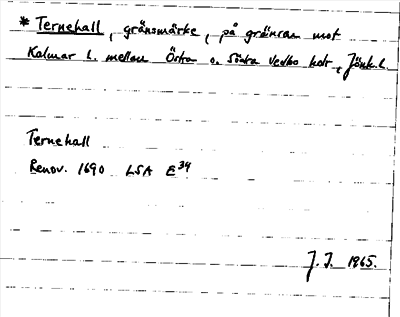 * Ternehall, gränsmärke, på gränsen mot
Kalmar l. mellan Östra o. Södra Vedbo hdr, Jönk. l.
Ternehall
Renov. 1690 LSA E34
J. J. 1965.